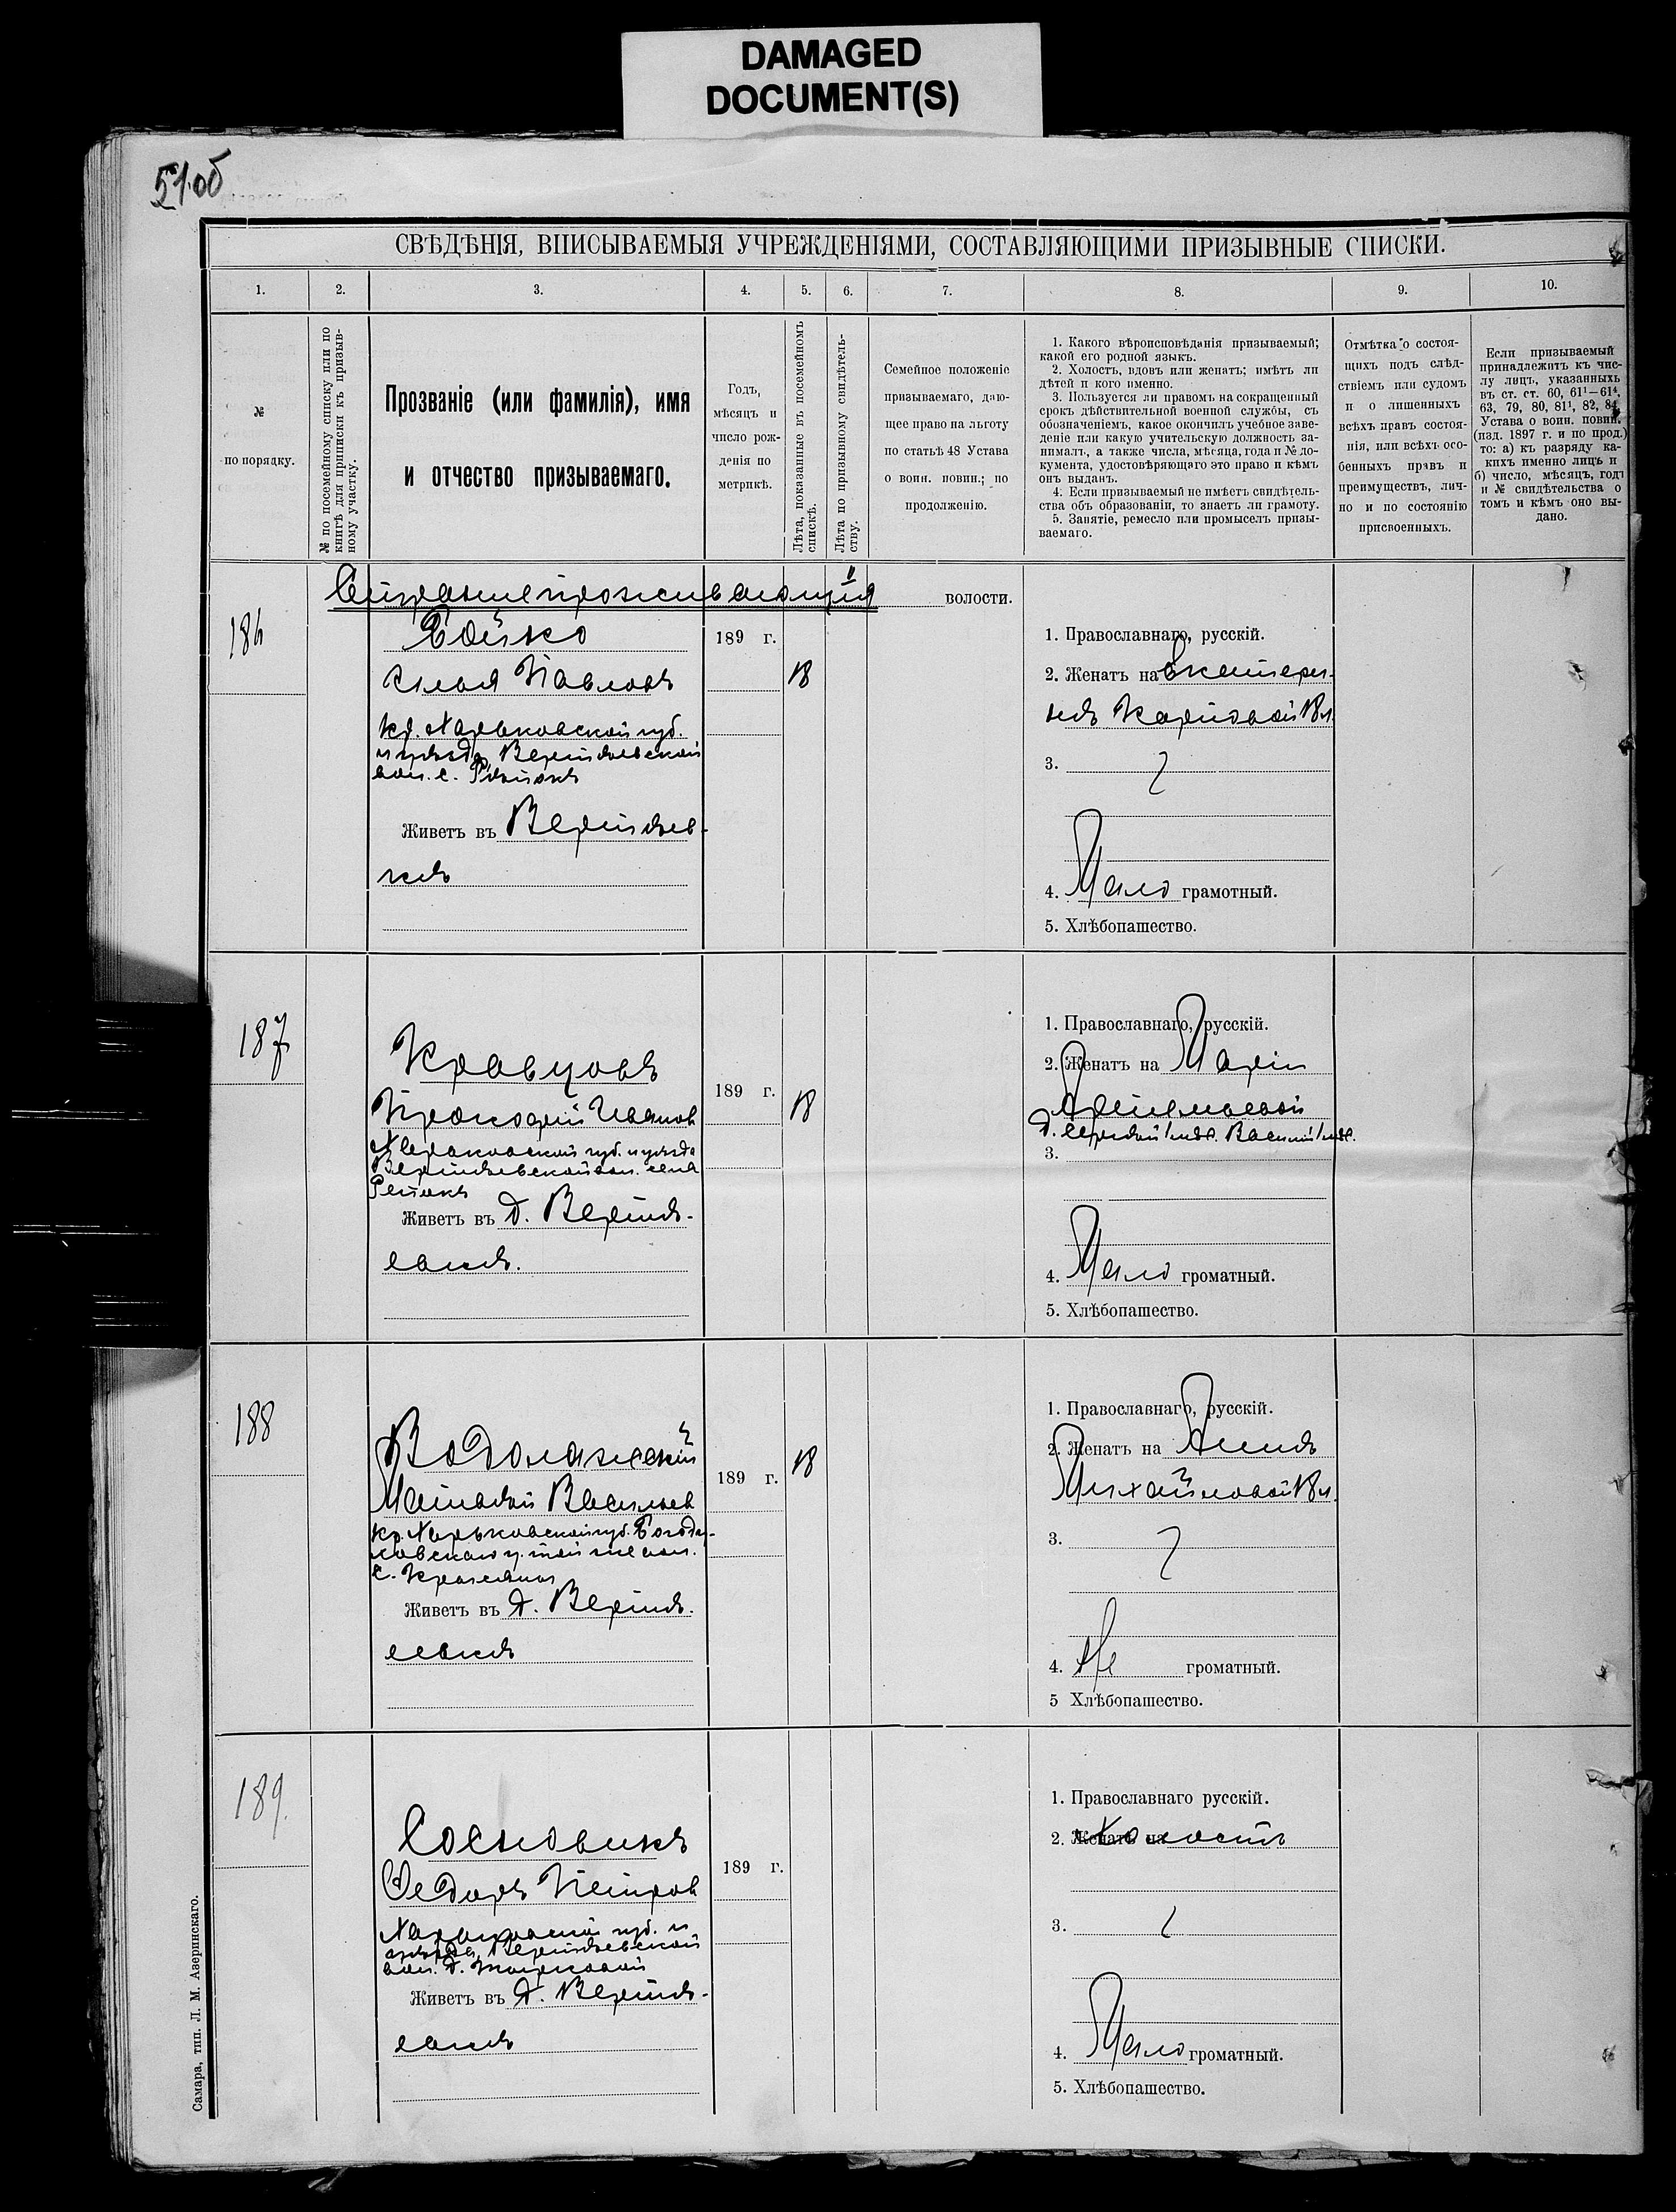 DAMAGED
DOCUMENT(S)
51об
СВѢДѢНІЯ, ВПИСЫВАЕМЫЯ УЧРЕЖДЕНІЯМИ, СОСТАВЛЯЮЩИМИ ПРИЗЫВНЫЕ СПИСКИ.
1. 2. 3. 4. 5. 6. 7. 8. 9. 10.
№
по порядку.
№ по посемейному списку или по
книгѣ для приписки къ призыв-
ному участку.
Прозваніе (или фамилія), имя
и отчество призываемаго.
Годъ,
мѣсяцъ и
число рож-
денія по
метрикѣ.
Лѣта, показанные въ посемейномъ
спискѣ.
Лѣта по призывному свидѣтель-
ству.
Семейное положеніе
призываемаго, даю-
щее право на льготу
по статьѣ 48 Устава
о воин. повин.; по
продолженію.
1. Какого вѣроисповѣданія призываемый;
какой его родной языкъ.
2. Холостъ, вдовъ или женатъ; имѣтъ ли
дѣтей и кого именно.
3. Пользуется ли правомъ на сокращенный
срокъ дѣйствительной военной службы, съ
обозначеніемъ, какое окончилъ учебное заве-
деніе или какую учительскую должность за-
нималъ, а также числа, мѣсяца, года и № до-
кумента, удостовѣряющаго это право и кѣмъ
онъ выданъ.
4. Если призываемый не имѣетъ свидѣтель-
ства объ образованіи, то знаетъ ли грамоту.
5. Занятіе, ремесло или промыселъ призы-
ваемаго.
Отмѣтка о состоя-
щихъ подъ слѣд-
ствіемъ или судомъ
и о лишенныхъ
всѣхъ правъ состоя-
нія, или всѣхъ осо-
бенныхъ правъ и
преимуществъ, лич-
но и по состоянію
присвоенныхъ.
Если призываемый
принадлежитъ къ чис-
лу лицъ, указанныхъ
въ ст. ст. 60, 61¹—61⁴,
63, 79, 80, 81¹, 82, 84
Устава о воин. повин.
(изд. 1897 г. и по прод.)
то: а) къ разряду ка-
кихъ именно лицъ и
б) число, мѣсяцъ, годъ
и № свидѣтельства о
томъ и кѣмъ оно вы-
дано.
волости.
186
Бойко
Илья Павловъ
кр. Харьковской губ.
и уѣзда, Вертѣевской
вол. с.
Живетъ въ Вертѣев-
кѣ
189 г.
18
1. Православнаго, русскій.
2. Женатъ на Екатери-
нѣ Карповой 18 л.
3.
4. Мало грамотный.
5. Хлѣбопашество.
187
Кравцовъ
Прокофій Иванов
Харьковской губ. и уѣзда
Вертѣевской вол. села
Живетъ въ д. Вертѣ-
евкѣ.
189 г.
18
1. Православнаго, русскій.
2. Женатъ на Маріи
Артемьевой
д. Сергѣй
3.
4. Мало громатный.
5. Хлѣбопашество.
188
Водолажскій
Матвѣй Васильев
кр. Харьковской губ. Богоду-
ховскаго у. той же вол.
с.
Живетъ въ д. Вертѣ-
евкѣ
189 г.
18
1. Православнаго, русскій.
2. Женатъ на Аннѣ
Михайловой 18 л.
3.
4. Не громатный.
5 Хлѣбопашество.
189.
Сосновикъ
Федоръ Петров
Харьковской губ. и
уѣзда, Вертѣевской
вол. д.
Живетъ въ д. Вертѣ-
евкѣ
189 г.
1. Православнаго русскій.
2. Женатъ на Холостъ
3.
4. Мало громатный.
5. Хлѣбопашество.
Самара, тип. Л. М. Азеринскаго.